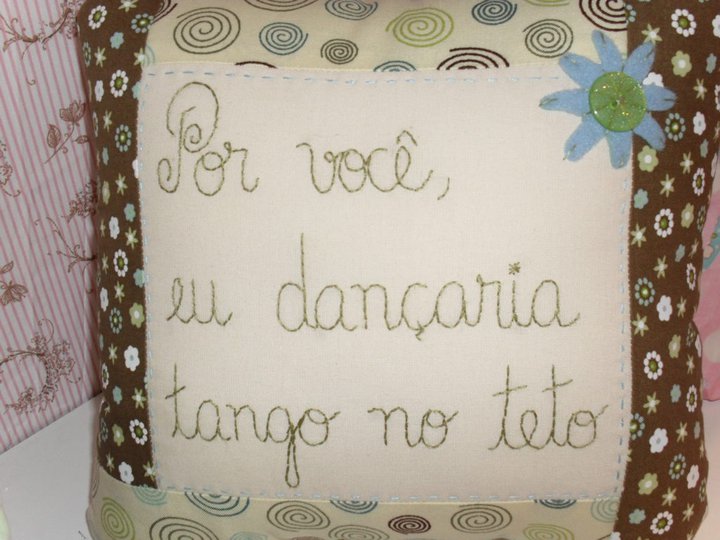 Por você,
eu dançaria
tango no teto